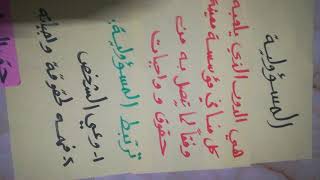 المسؤولية
هي الدور الذي يلعبه
كل منا في مؤسسة معينة
وفقاً لما يتصل به من
حقوق و واجبات
ترتبط المسؤولية:
١- وعي الشخص
٢- فهمه لحقوقه واجباته